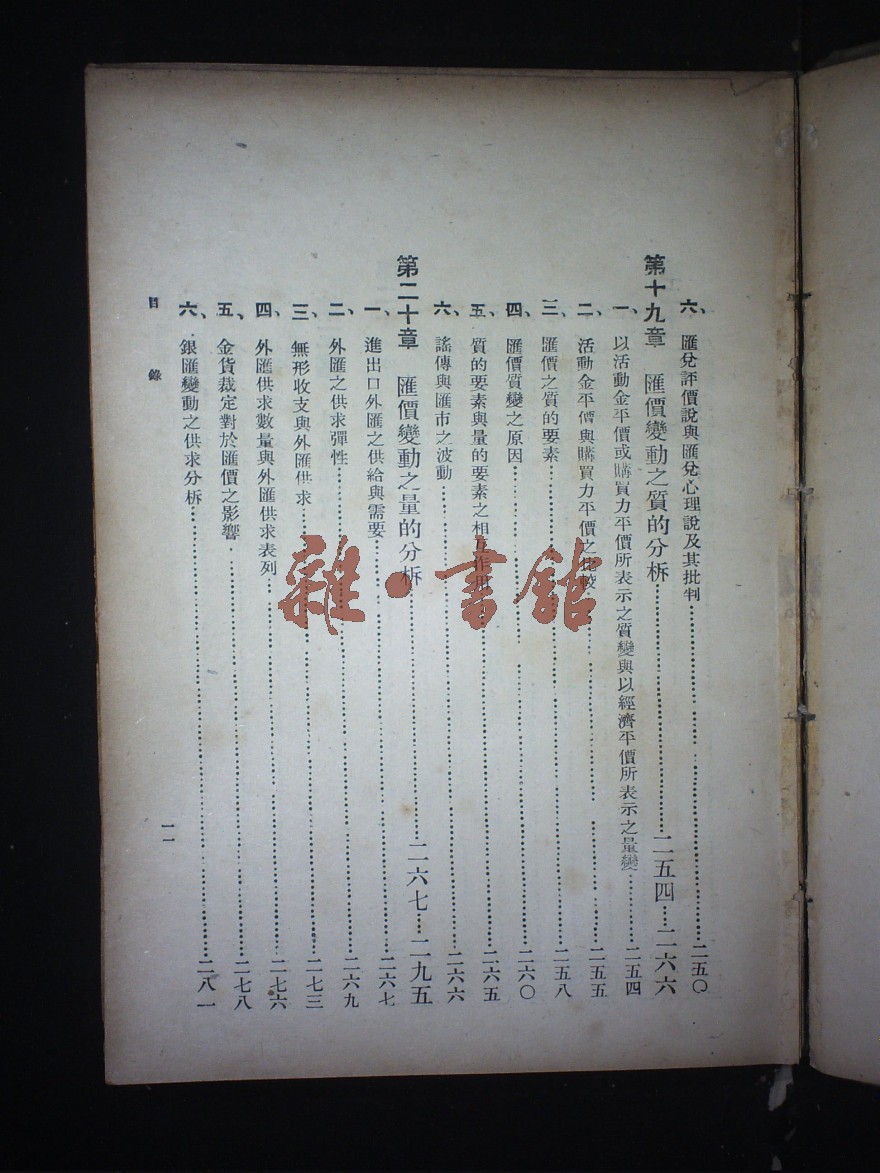 六、匯兌評價說與匯兌心理說及其批判……二五〇
第十九章 匯價變動之質的分析……二五四……二六六
一、以活動金平價或購買力平價所表示之質變與以經濟平價所表示之量變……二五四
二、活動金平價與購買力平價之比較……二五五
三、匯價之質的要素……二五八
四、匯價質變之原因……二六〇
五、質的要素與量的要素之相互作用……二六五
六、謠傳與匯市之波動……二六六
第二十章 匯價變動之量的分析……二六七……二九五
一、進出口外匯之供給與需要……二六七
二、外匯之供求彈性……二六九
三、無形收支與外匯供求……二七三
四、外匯供求數量與外匯供求表列……二七六
五、金貨裁定對於匯價之影響……二七八
六、銀匯變動之供求分析……二八一
目錄
一一
雜·書館